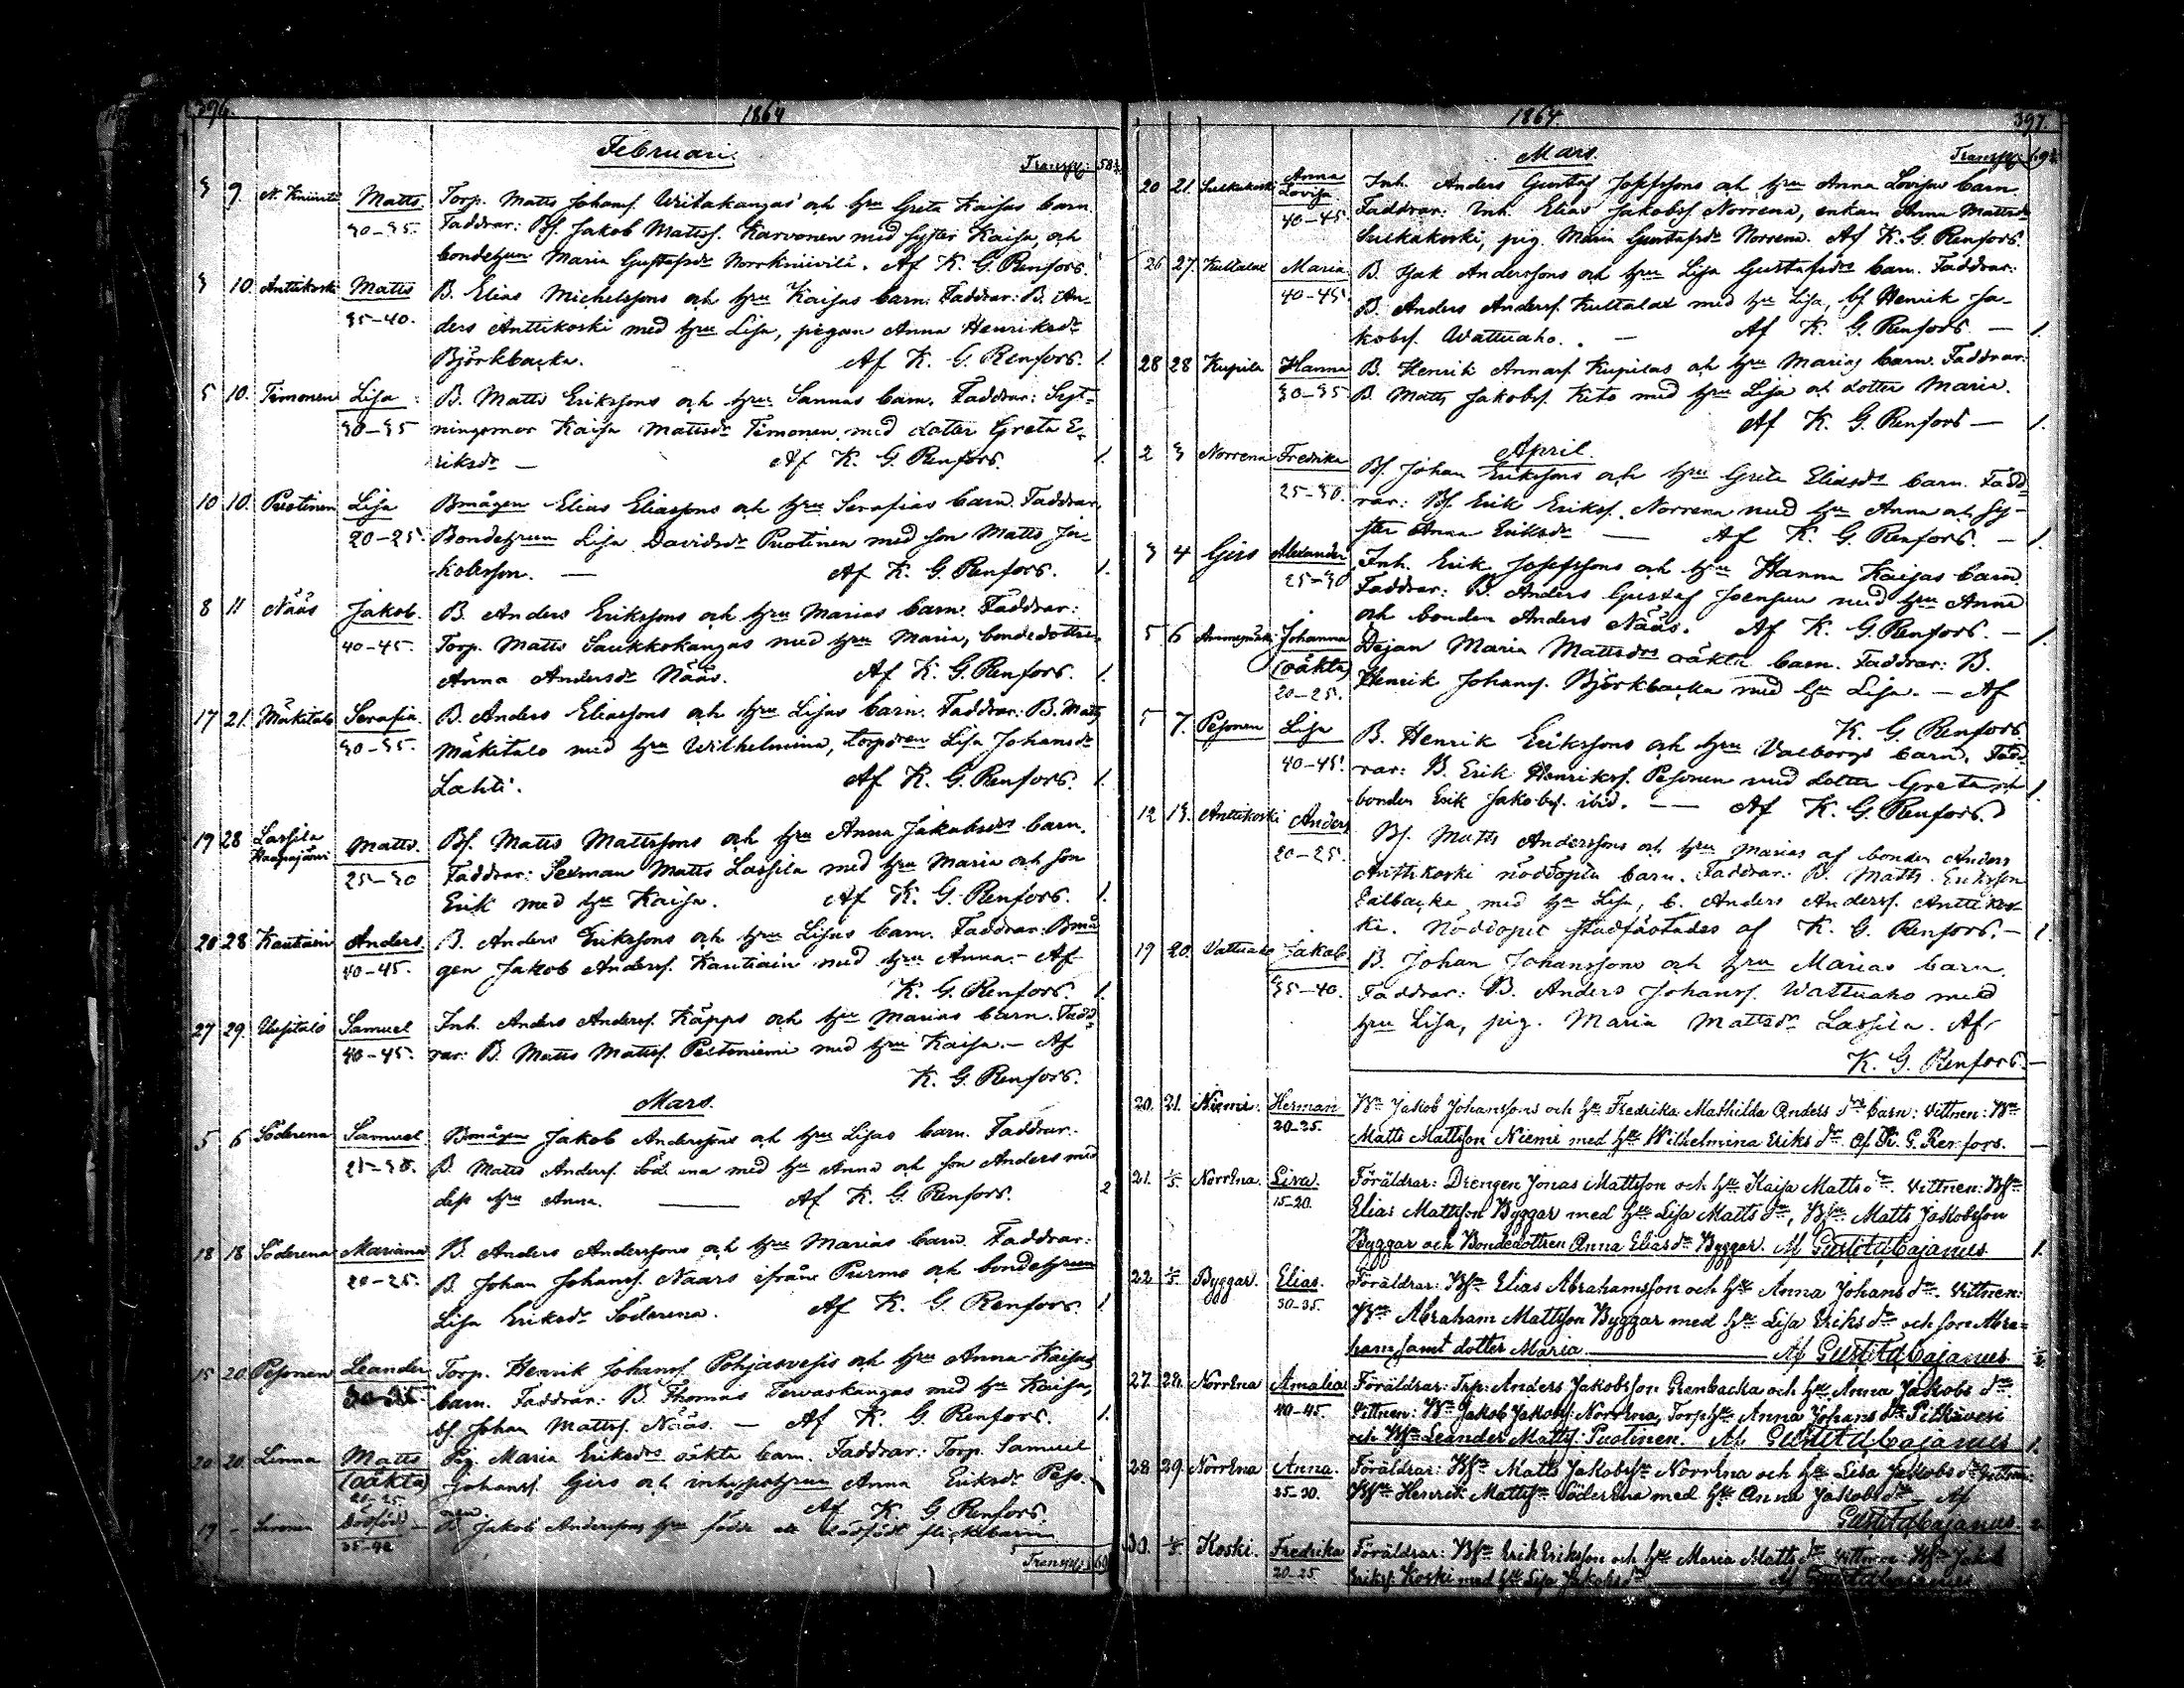 396. 1864
Februari.
Transp: 58½
3 9. N. Kniivilä Matts Torp. Matts Johans. Wiitakangas och hru Greta Kaisas barn.
30-35. Faddrar: Bs. Jakob Mattss. Karvonen med syster Kaisa och
bondehrun Maria Gustafsdr Norrkniivilä. Af K. G. Renfors.
3 10. Anttikoski Matts B. Elias Michelssons och hru Kaisas barn. Faddrar: B. An-
35-40. ders Anttikoski med hru Lisa, pigan Anna Henriksdr
Björkbacka. Af K. G. Renfors. 1.
5 10. Timonen Lisa B. Matts Erikssons och hru Sannas barn. Faddrar: Syt-
30-35 ningsmor Kaisa Mattsdr Timonen med dotter Greta E-
riksdr — Af K. G. Renfors. 1.
10 10. Puotinen Lisa Bmågen Elias Eliassons och hru Serafias barn. Faddrar,
20-25. Bondehrun Lisa Davidsdr Puotinen med son Matts Ja-
kobsson. — Af K. G. Renfors. 1.
8 11 Nääs Jakob. B. Anders Erikssons och hru Marias barn. Faddrar:
40-45. Torp. Matts Saukkokangas med hru Maria, bondedottren
Anna Andersdr Nääs. Af K. G. Renfors. 1.
17 21. Mäkitalo Serafia. B. Anders Eliassons och hru Lisas barn. Faddrar: B. Matts
30-35. Mäkitalo med hru Wilhelmina, torpdren Lisa Johansdr
Lahti. Af K. G. Renfors. 1.
19 28 Lassila Haapajärvi Matts. Bs. Matts Mattssons och hru Anna Jakobsdrs barn.
25-30 Faddrar: Sexman Matts Lassila med hru Maria och son
Erik med hru Kaisa. Af K. G. Renfors. 1.
20 28 Kautiain Anders. B. Anders Erikssons och hru Lisas barn. Faddrar: Bmå
40-45. gen Jakob Anderss. Kautiain med hru Anna. - Af
K. G. Renfors. 1.
27 29. Uusitalo Samuel Inh. Anders Anderss. Käpps och hru Marias barn. Fadd-
40-45. rar: B. Matts Mattss. Peltoniemi med hru Kaisa. - Af
K. G. Renfors.
Mars.
5 6 Söderena Samuel Bmågen Jakob Anderssons och hru Lisas barn. Faddrar:
25-30. B. Matts Anderss. Söderena med hru Anna och son Anders med
dess hru Anna. — Af K. G. Renfors. 2
18 18 Söderena Mariana B. Anders Anderssons och hru Marias barn. Faddrar:
20-25. B. Johan Johanss. Naars ifrån Purmo och bondehrun
Lisa Eriksdr Söderena. Af K. G. Renfors. 1
15 20 Pesonen Leander Torp. Henrik Johanss. Pohjasvesis och hru Anna Kaisas
30-35 barn. Faddrar: B. Thomas Tervaskangas med hru Kaisa,
bs. Johan Mattss. Nääs. — Af K. G. Renfors. 1.
20 20. Linna Matts Pig. Maria Eriksdrs oäkta barn. Faddrar: Torp. Samuel
(oäkta) Johanss. Girs och inhyseshrun Anna Eriksdr Peso-
20-25. nen. Af K. G. Renfors.
19 - Dödfödd — B. Jakob Anderssons hru födde ett dödfödt flickebarn
35-40
Transp:
1864. 397.
Mars.
Transp:
20 21. Sulkakoski Anna
Lovisa Inh. Anders Gustaf Josefssons och hru Anna Lovisas barn.
40-45. Faddrar: Inh. Elias Jakobs. Norrena, enkan Anna Mattsdr
Sulkakoski, pig. Maria Gustafsdr Norrena. Af K. G. Renfors.
26 27. Kultalax Maria B. Isak Anderssons och hru Lisa Gustafsdrs barn. Faddrar:
40-45. B. Anders Anderss. Kultalax med hru Lisa, bs Henrik Ja-
kobss. Wattuaho. — Af K. G. Renfors — 1.
28 28 Kupila Hanna B. Henrik Kupilas och hru Marias barn. Faddrar:
30-35. B. Matts Jakobss. Kito med hru Lisa och dotter Maria.
Af K. G. Renfors — 1.
April.
2 3 Norrena Fredrika Bs. Johan Erikssons och hru Greta Eliasdrs barn. Fadd-
25-30. rar: Bs. Erik Erikss. Norrena med hru Anna och sy-
ster Anna Eriksdr — Af K. G. Renfors. — 1.
3 4 Girs Alexander Inh. Erik Josefssons och hru Hanna Kaisas barn.
25-30 Faddrar: B. Anders Gustaf Joensuu med hru Anna
och bonden Anders Nääs. Af K. G. Renfors. — 1.
5 6 Johanna Dejan Maria Mattsdrs oäkta barn. Faddrar: B.
(oäkta) Henrik Johanss. Björkbacka med hru Lisa. — Af
20-25. K. G. Renfors
5 7. Pesonen Lisa B. Henrik Erikssons och hru Valborgs barn. Fadd-
40-45. rar: B. Erik Henrikss. Pesonen med dotter Greta och
bonden Erik Jakobss. ibid. — Af K. G. Renfors. 1.
12 13. Anttikoski Anders Bs. Matts Anderssons och hru Marias af bonden Anders
20-25. Anttikoski nöddöpta barn. Faddrar: B. Matts Eriksson
med hru Lisa, b. Anders Anderss. Anttikos-
ki. Nöddopet stadfästades af K. G. Renfors. — 1.
19 20. Vattuaho Jakob B. Johan Johanssons och hru Marias barn.
35-40. Faddrar: B. Anders Johanss. Wattuaho med
hru Lisa, pig. Maria Mattsdr Lassila. Af
K. G. Renfors. —
20. 21. Niemi. Herman Bn Jakob Johanssons och hu Fredrika Mathilda Anders drs barn: Vittnen: Bn
20-25. Matts Mattsson Niemi med hu Wilhelmina Eriks dr. Af K. G. Renfors. —
21. 1/5 Norrena. Lisa. Föräldrar: Drengen Jonas Mattsson och hu Kaisa Matts dr. Vittnen: Bsn
15-20. Elias Mattsson Byggar med hu Lisa Matts dr, Bsn Matts Jakobsson
Byggar och Bondedottren Anna Elias dr Byggar. Af Gust. Ad. Cajanus 1.
22 1/5 Byggar. Elias. Föräldrar: Bsn Elias Abrahamsson och hu Anna Johans dr. Vittnen:
30-35. Bn Abraham Mattsson Byggar med hu Lisa Eriks dr och son Abra-
ham samt dotter Maria. — Af Gust. Ad. Cajanus
27. 28. Norrena Amalia Föräldrar: Trp: Anders Jakobsson Grenbacka och hu Anna Jakobs dr.
40-45. Vittnen: Bn Jakob Jakobs. Norrena, Torphu Anna Johans dr Pitkävesi
och Bsn Leander Mattss: Puotinen. Af Gust. Ad. Cajanus 1.
28. 29 Norrena Anna. Föräldrar: Bsn Matts Jakobsson Norrena och hu Lisa Jakobs dr Vittnen:
25-30. Bsn Henrik Mattssn Söderena med hu Anna Jakobs dr — Af
Gust. Ad. Cajanus. 2.
30. 1/5 Koski. Fredrika Föräldrar: Bsn Erik Eriksson och hu Maria Matts dr. Vittnen: Bsn Jakob
20-25. Erikss: Koski med hu Lisa Jakobs dr — Af Gust. Ad. Cajanus